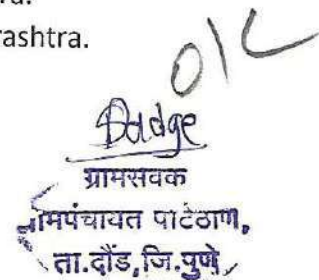 ra.
rashtra.
O/C
ग्रामसेवक
ग्रामपंचायत पाटेठाण,
ता.दौंड,जि.पुणे